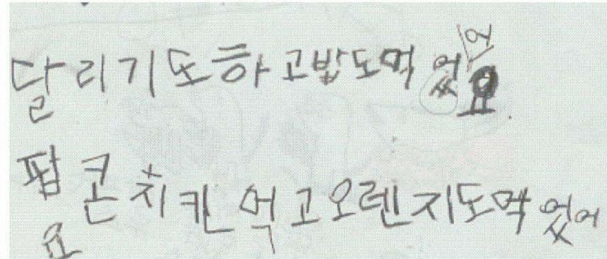 달리기도하고밥도먹었요
팝콘치킨먹고오렌지도먹었어
요